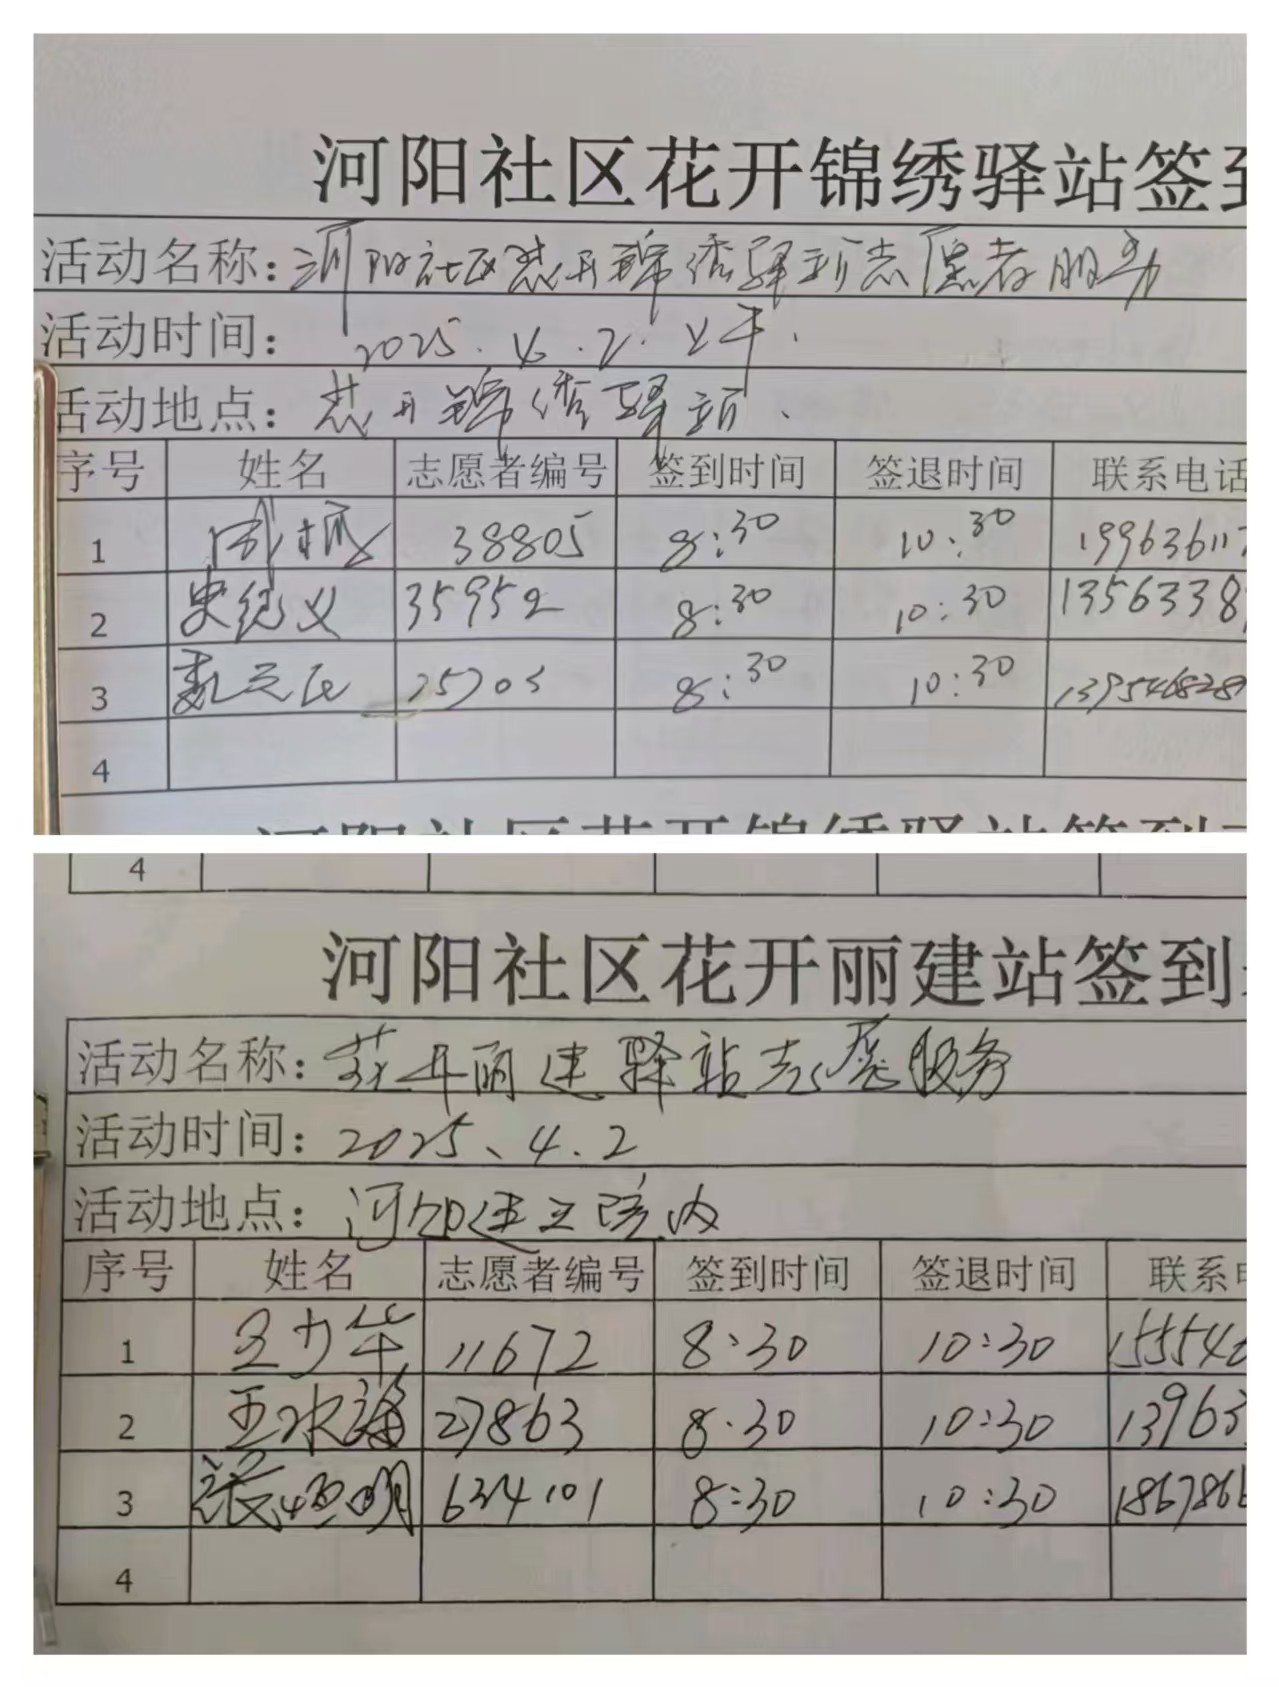 河阳社区花开锦绣驿站签到
活动名称：河阳社区花开锦绣驿站志愿者服务
活动时间： 2025.4.2.上午.
活动地点：花开锦绣驿站.
序号 姓名 志愿者编号 签到时间 签退时间 联系电话
1 38805 8:30 10:30 199636117
2 史纪义 35952 8:30 10:30 13563389
3 魏元民 25703 8:30 10:30 1395468281
4
河阳社区花开锦绣驿站签到
4
河阳社区花开丽建站签到
活动名称：花开丽建驿站志愿服务
活动时间：2025、4.2
活动地点：河阳建工院内
序号 姓名 志愿者编号 签到时间 签退时间 联系电
1 王力华 11672 8:30 10:30 155542
2 王永海 27863 8:30 10:30 13963
3 634101 8:30 10:30 1867866
4